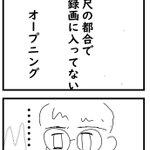 尺の都合で
録画に入ってない
オープニング
………